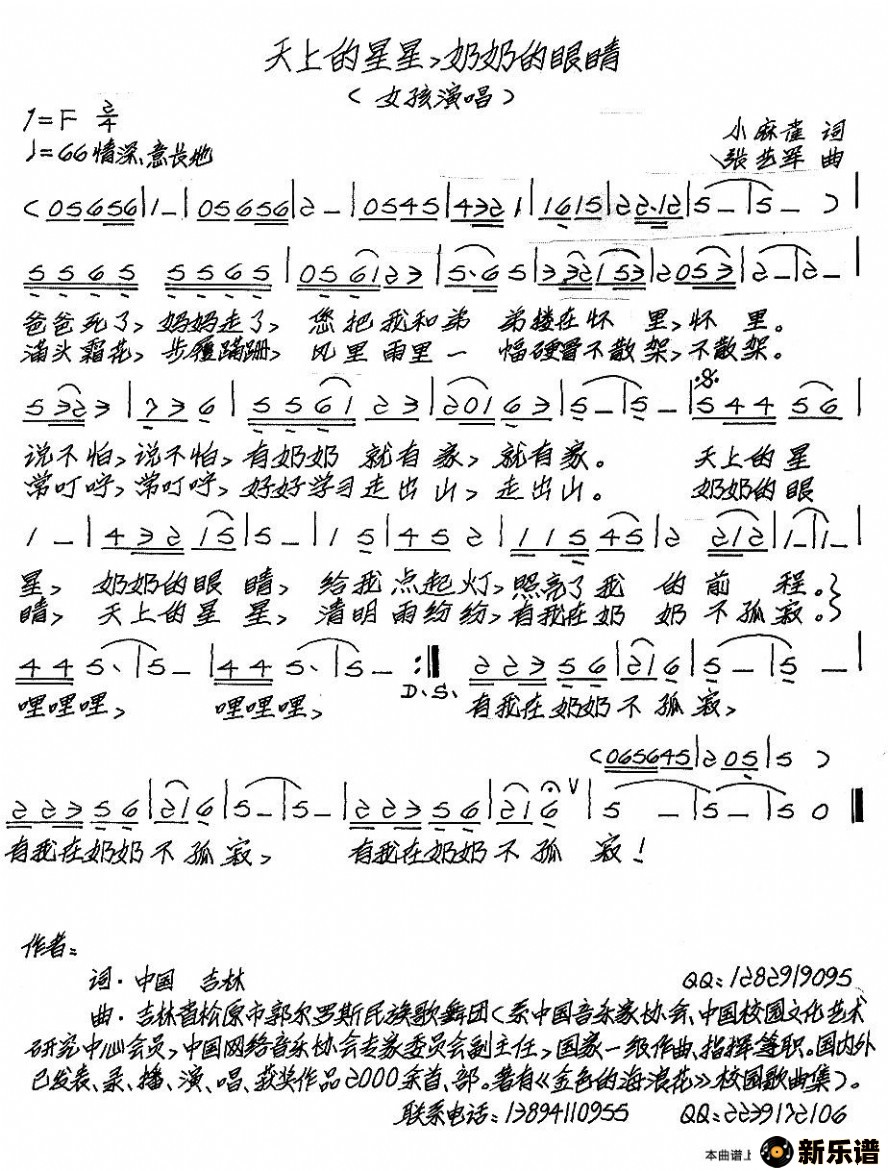 天上的星星,奶奶的眼睛
(女孩演唱)
1=F 2/4
♩=66 情深、意长地
小麻雀 词
张艺军 曲
(05656|1—|05656|2—|0545|4321|1615|22·12|5—|5—)|
5565 5565|056123|5·65|332153|2053|2—|2—|
爸爸死了,妈妈走了,您把我和弟 弟搂在怀 里,怀 里。
满头霜花,步履蹒跚,风里雨里一 幅硬骨不散架,不散架。
5323|736|5561 23|20163|5—|5—|544 56|
说不怕,说不怕,有奶奶 就有家,就有家。 天上的星
常叮咛,常叮咛,好好学习走出山,走出山。 奶奶的眼
1—|432 15|5—|15|452|115 45|2 212|1—|1—|
星,奶奶的眼 睛,给我点起灯,照亮了我 的前 程。
睛,天上的星 星,清明雨纷纷,有我在奶 奶不孤寂。
445·|5—|445·|5—:‖ 22356|216|5—|5—|
D.S.
哩哩哩, 哩哩哩, 有我在奶奶不孤寂,
(065645|205|5)
22356|216|5—|5—|22356|216|5—|5—|50‖
有我在奶奶不孤寂, 有我在奶奶不孤 寂!
作者:
词·中国 吉林 QQ:1282919095
曲·吉林省松原市郭尔罗斯民族歌舞团(系中国音乐家协会、中国校园文化艺术
研究中心会员,中国网络音乐协会专家委员会副主任,国家一级作曲、指挥等职。国内外
已发表、录、播、演、唱、获奖作品2000余首、部。著有《金色的海浪花》校园歌曲集)。
联系电话:13894110955 QQ:2239172106
本曲谱上 新乐谱